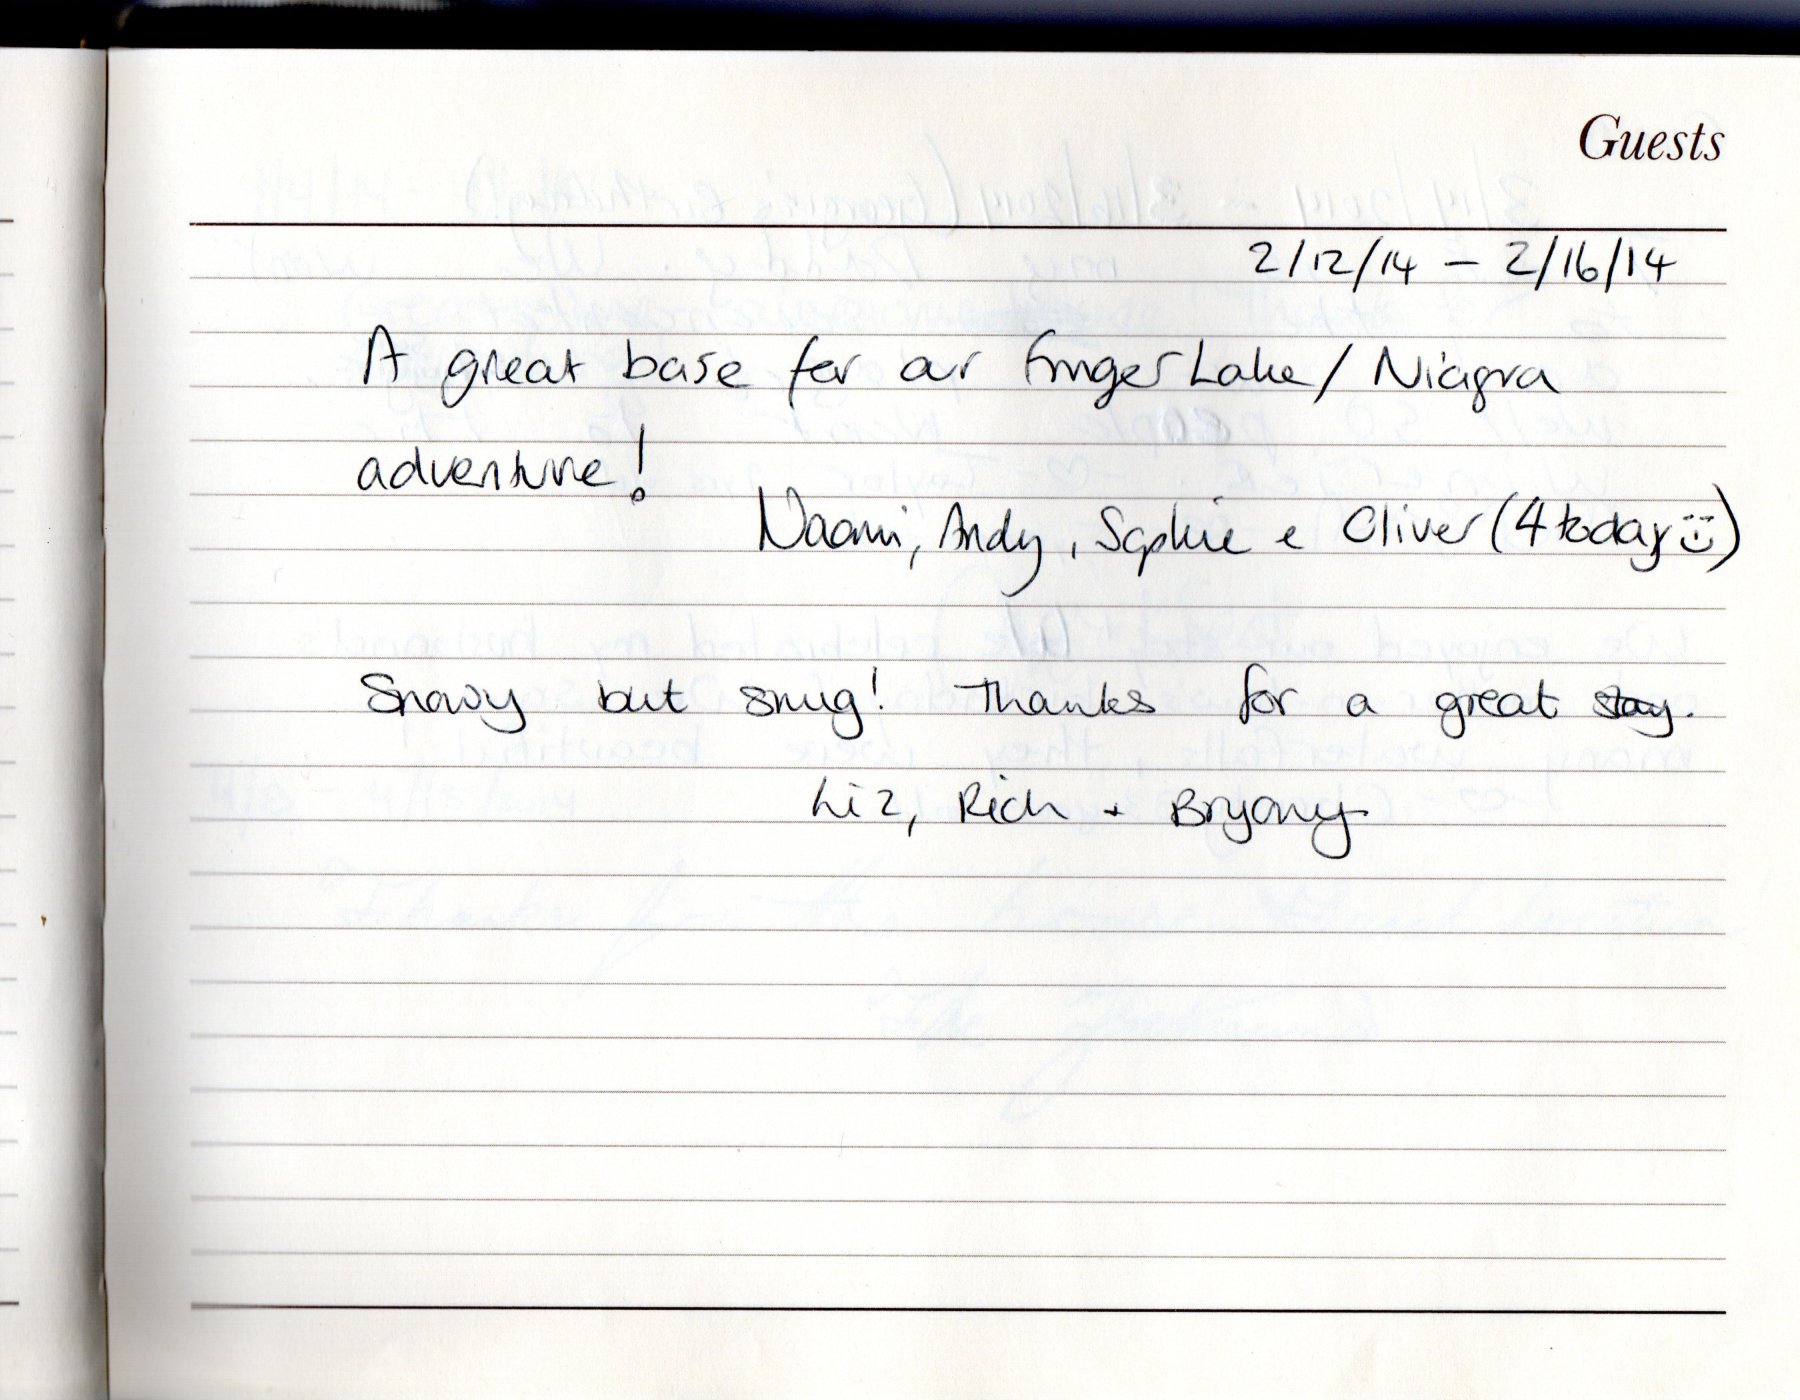 Guests
2/12/14 – 2/16/14
A great base for our Finger Lake / Niagra
adventure!
Naomi, Andy, Sophie & Oliver (4 today :))
Snowy but snug! Thanks for a great stay.
Liz, Rich + Bryony